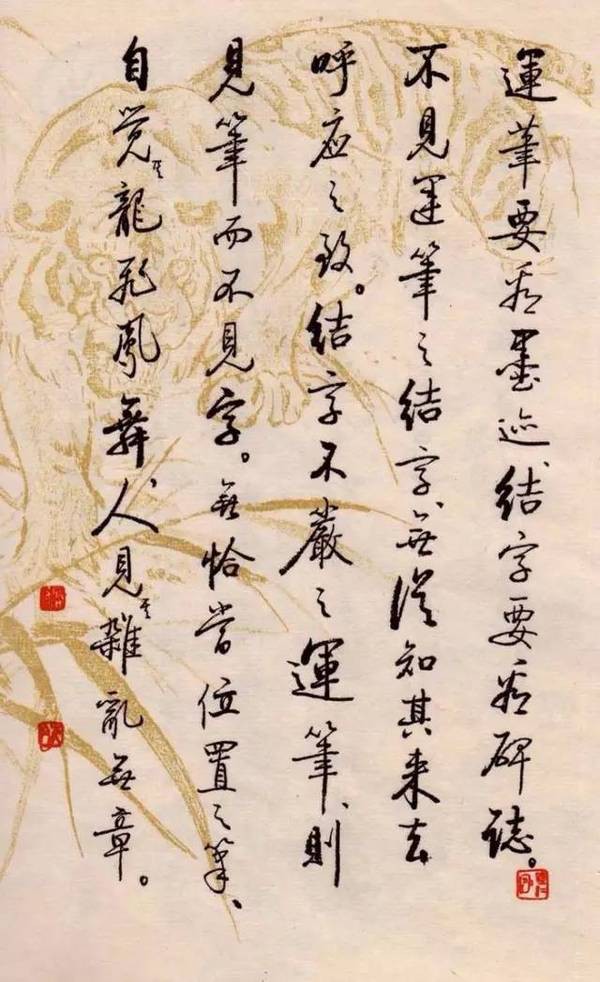 運筆要看墨迹、结字要看碑誌。
不見運筆之结字、無從知其来去
呼应之致。结字不嚴之運筆、則
見筆而不見字。無恰當位置之筆、
自觉其龍飛鳳舞、人見其雜亂無章。